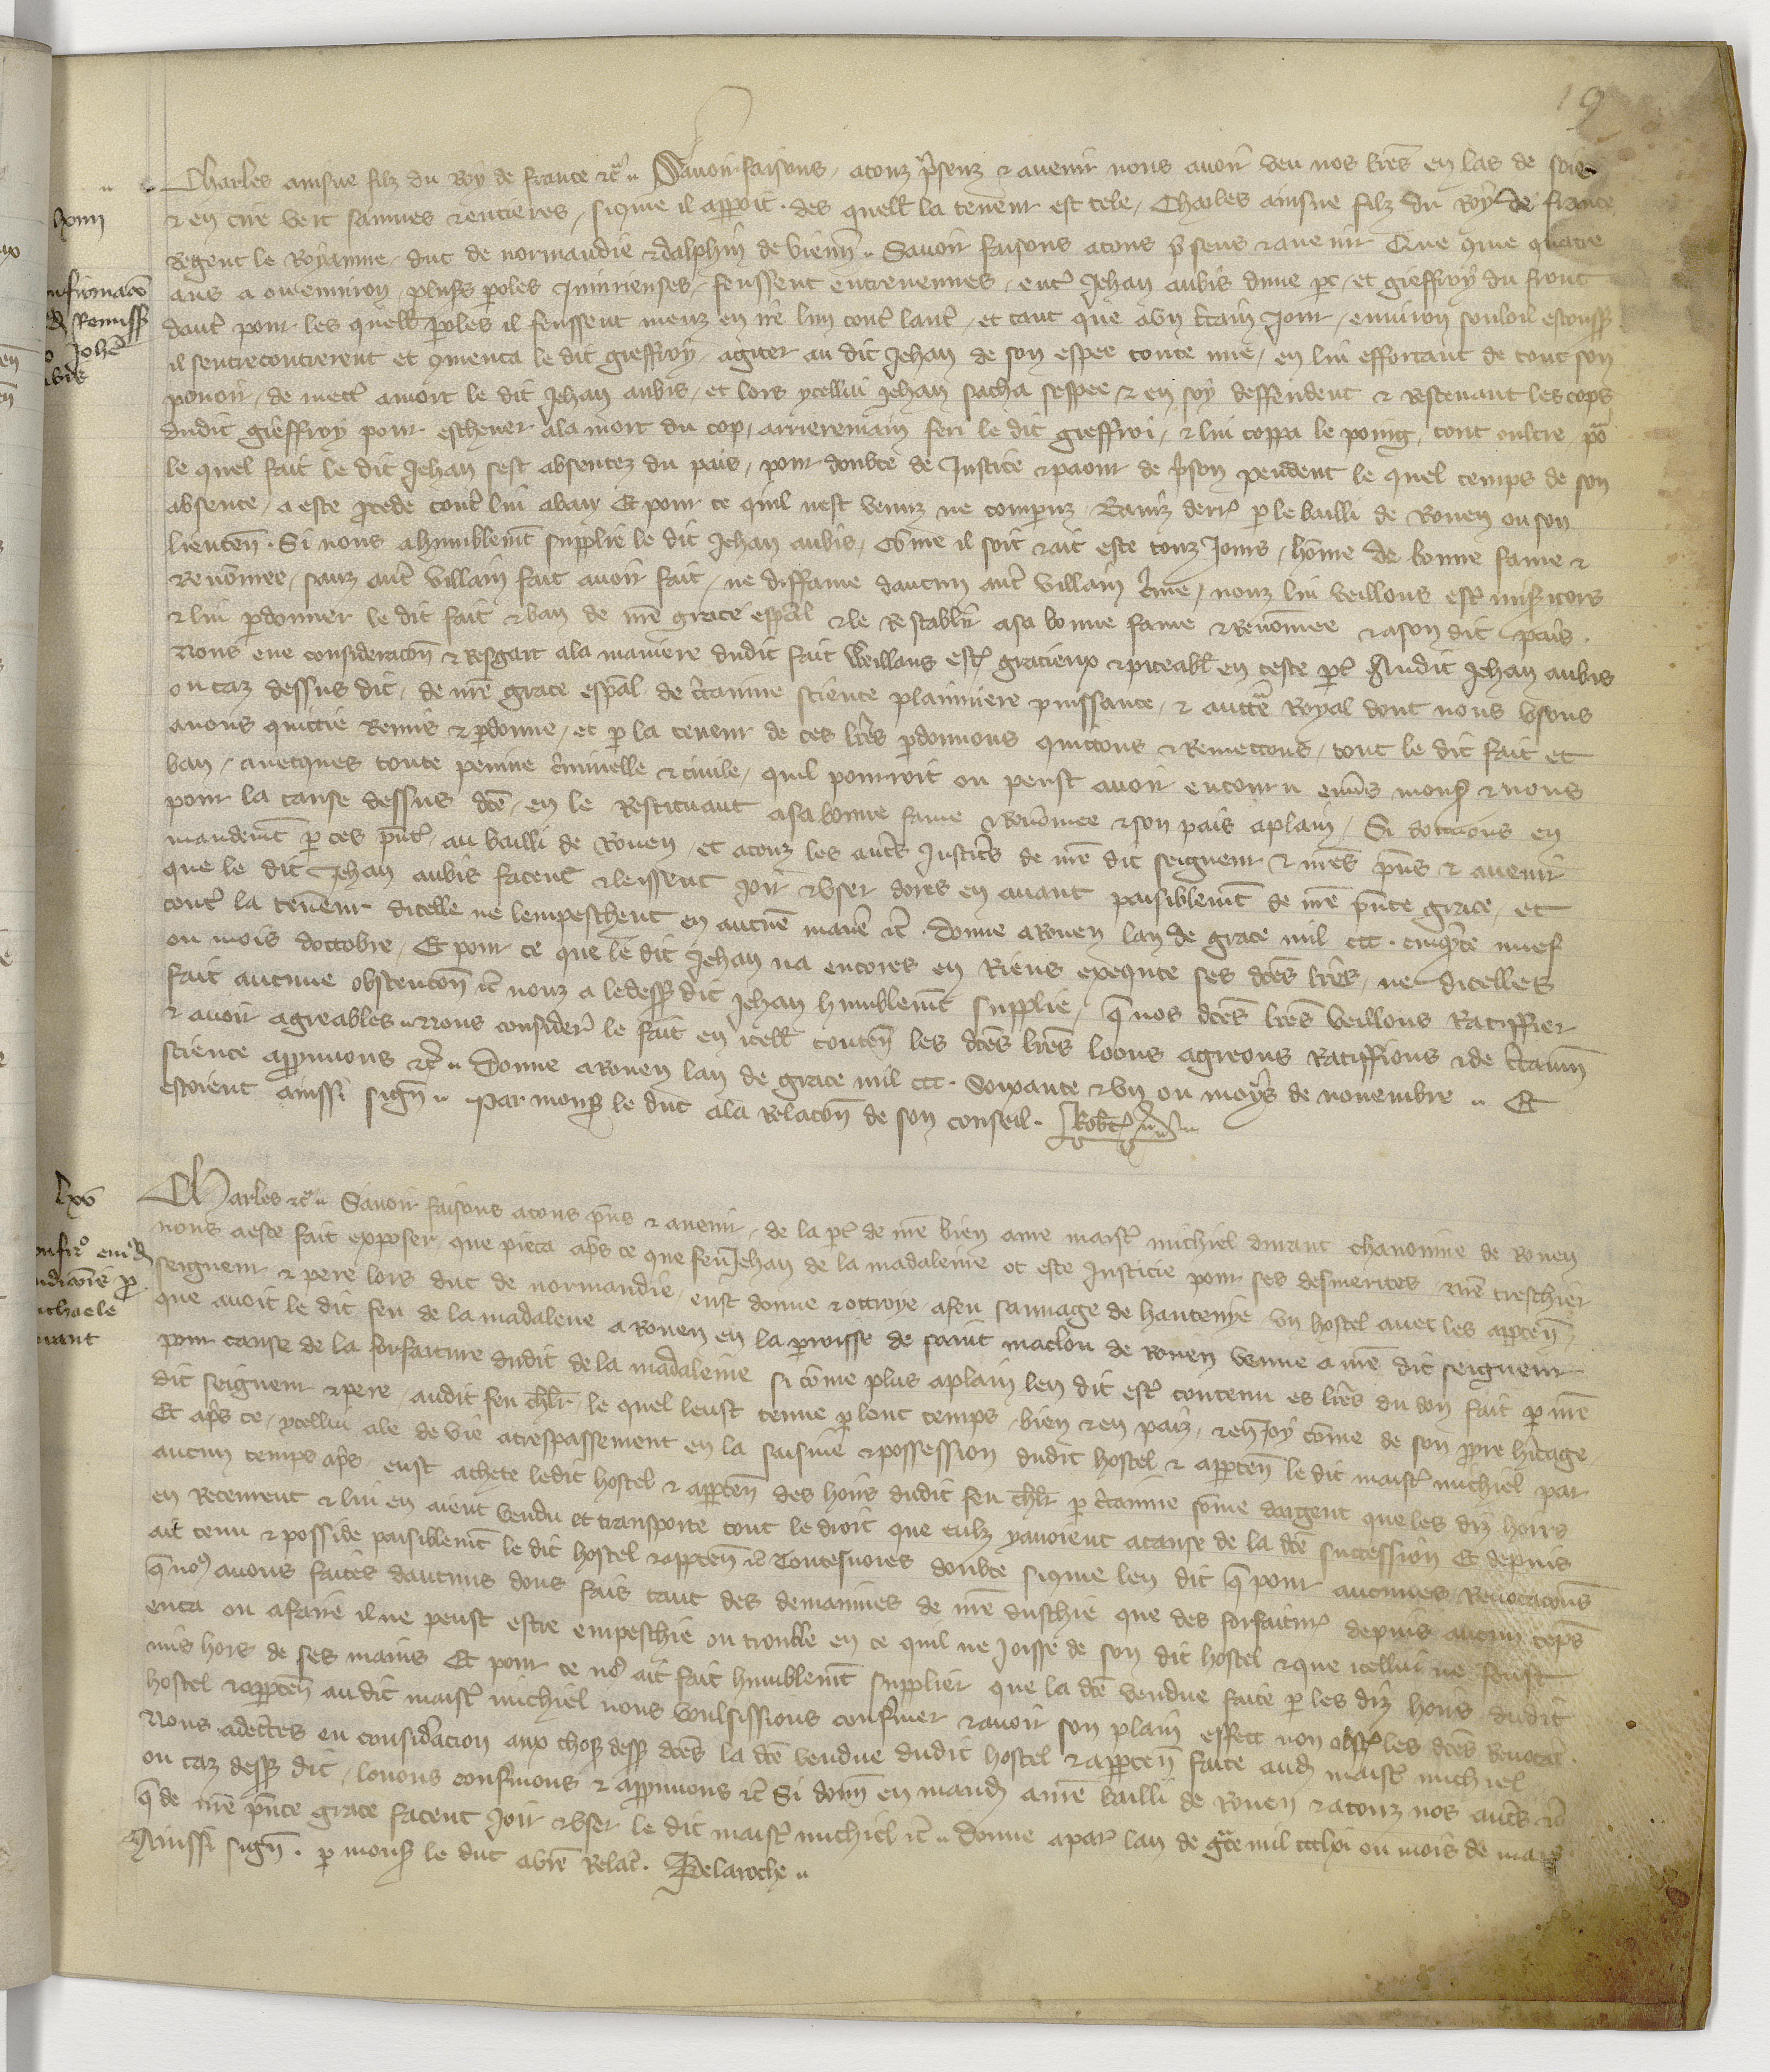 19
Charles ainsne filz du Roy de france etc. Savoir faisons atouz presenz & avenir nous avoir veu nos lres en las de soie
& en cire vert saines & entieres, sicome il apparoit, des quelles la teneur est tele, Charles ainsne filz du Roy de france
Regent le Royaume, duc de normandie & dalphin de vienn. Savoir faisons atous psens & avenir Que come quatre
ans a ou environ, plusrs poles Iniurienses, feussent entrevenues, entre Jehan aubis dune pt, et gieffroy du front
dautre pour les quelles poles il feussent meuz en ire lun contre lautre, et tant que a un ctain Jour, environ souloil escouss
il sentrecontrerent et comenca le dit gieffroy, agiter au dit Jehan de son espee toute nue, en lui efforcant de tout son
povoir, de mettre amort le dit Jehan aubis, et lors ycellui Jehan sacha sespee & en soy deffendent & Rescevant les cops
dudit gieffroy pour eschever ala mort du cop, arrieremain feri le dit gieffroi, & lui coppa le poing, tout oultre, pour
le quel fait le dit Jehan sest absentez du pais, pour doubte de Justice & paour de pson pendent le quel temps de son
absence, a este pcede contre lui aban Et pour ce quil nest venuz ne comparuz, Baniz derr p le bailli de Rouen ou son
lieuten. Si nous ahumblemt supplie le dit Jehan aubis, Come il soit & ait este touz Jours, home de bonne fame &
Renomee, sanz autre villain fait avoir fait, ne diffame daucun autre villain cime, nouz lui veillons estre misicors
& lui pdonner le dit fait & ban de nre grace espal & le Restablir asa bonne fame & Renomee & ason dit pais.
Nous eue consideracon & Resgart ala maniere dudit fait Veillans estre gracieux & piteabl en ceste pt Audit Jehan aubis
ou caz dessus dit, de nre grace espal de ctaine science plainniere puissance, & auctte Royal dont nous usons
avons quictie Remis & pdonne, et p la teneur de ces lres pdonnons quictons & Remectons, tout le dit fait et
ban, avecques toute peinne criminelle & civile, quil pourroit ou peust avoir encouru envers mons & nous
pour la cause dessus dce, en le Restituant asa bonne fame & Renomee & son pais aplain, Si donnons en
mandemt p ces pntes, au bailli de Rouen, et atouz les autres Justices de nre dit seigneur & nres pns & avenir
que le dit Jehan aubis facent & leissent Joir & user dores en avant paisiblemt de nre pnte grace, et
contre la teneur dicelle ne lempeschent en aucune maniere etc. Donne a Rouen lan de grace mil ccc. cinqte nuef
ou mois doctobre, Et pour ce que le dit Jehan na encores en Riens exequte ses dces lres, ne dicelles
fait aucune obstencon etc nouz a ledess dit Jehan humblemt supplie, q nos dces lres Veillons Ratiffier
& avoir agreables Nous consider le fait en icell conten les dces lres loons agreons Ratiffions & de ctain
science appuvons etc. Donne a Rouen lan de grace mil ccc. Soixante & un ou moys de novembre. Et
estoient ainssi sign. Par mons le duc ala Relacon de son conseil. Robt
lxiiii
nfirmaco
Remiss
Johe
ubis
lxv
Charles etc. Savoir faisons atous pns & avenir, de la pt de nre bien ame maistre michiel durant chanoinne de Rouen
nous aeste fait expposer, que pieca aps ce que feu Jehan de la madaleine ot este Justicie pour ses desmerites, nre treschier
seigneur & pere lors duc de normandie, eust donne & ottroye, afeu sauvage de hantenye, un hostel avec les apparten,
que avoit le dit feu de la madalene a Rouen en la proisse de saint maclou de Rouen venue a nre dit seigneur
pour cause de la forfaiture dudit de la madaleine si come plus aplain len dit estre contenu es lres du don fait p nre
dit seigneur & pere, audit feu chlr, le quel leust tenue p lonc temps, bien & en paix, & en Joy come de son ppre hitage
Et aps ce, ycellui ale de vie atrespassement en la saisine & possession dudit hostel & apparten le dit maistre michiel par
aucun temps aps, eust achete ledit hostel & apparten des hoirs dudit feu chlr p ctaine some dargent que les diz hoirs
en Recevrent & lui en aient vendu et transporte tout le droit que eulz yavoient acause de la dce succession Et depuis
ait tenu & posside paisiblemt le dit hostel & apparten etc Toutesvoies doubte sicome len dit q pour aucunes Revocacons
q nous avons faites daucuns dons fais tant des demainnes de nre duschie que des forfaitures depuis aucun teps
enca ou afaire il ne peust estre empeschie ou trouble en ce quil ne Joisse de son dit hostel & que icellui ne feust
mis hors de ses mains Et pour ce nous ait fait humblemt supplier que la dce vendue faite p les diz hoirs dudit
hostel & apparten au dit maistre michiel nous voulsissions confmer & avoir son plain effect non obst les dces Revocac.
Nous adectes eu considacion aux chos dess dces la dce vendue dudit hostel & apparten faite aud maistre michiel
ou caz dess dit, louons confmons & appuvons etc Si donn en mand anre bailli de Rouen & atouz nos autres etc
q de nre pnte grace facent Joir & user le dit maistre michiel etc. Donne apar lan de gce mil ccclxi ou mois de mars
Ainssi sign. p mons le duc avre Relac. Delaroche
onfir
p
ichaele
urant